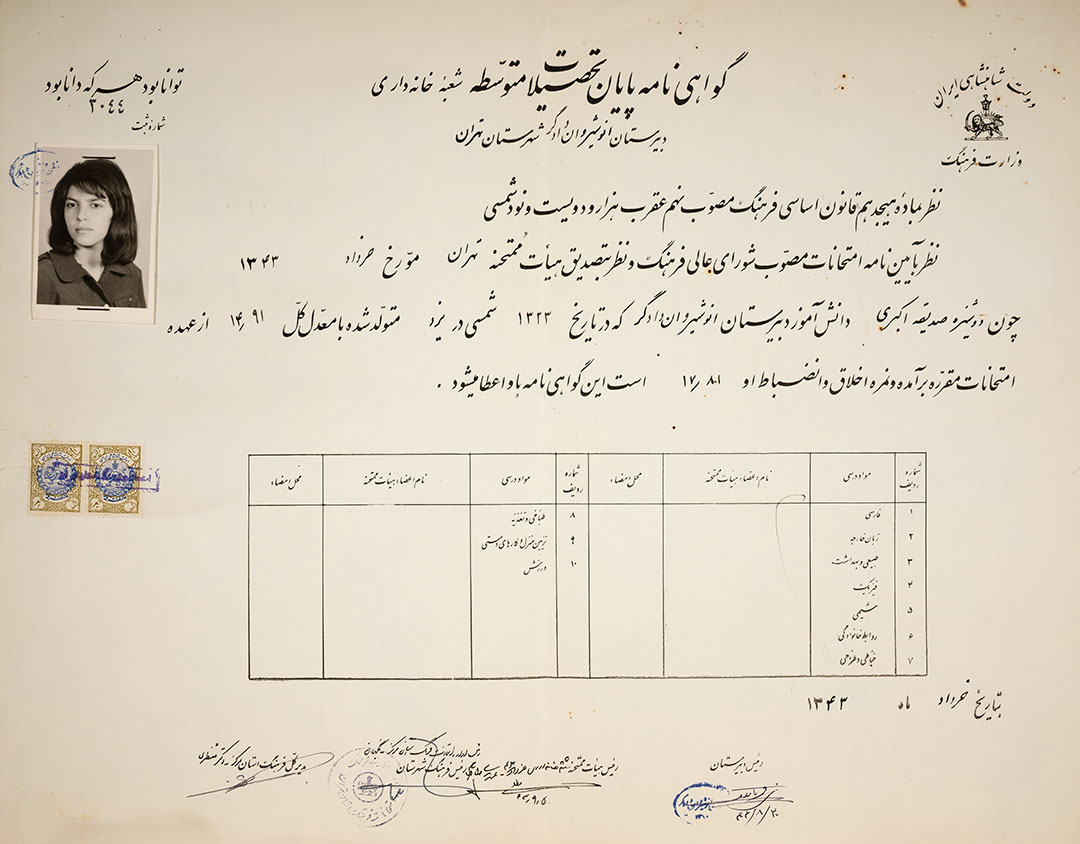 دولت شاهنشاهی ایران
وزارت فرهنگ
گواهی نامه پایان تحصیلات متوسّطه شعبهٔ خانه داری
دبیرستان انوشیروان دادگر شهرستان تهران
توانا بود هر که دانا بود
۳۰۴۴
شمارهٔ ثبت
نظر بمادهٔ هیجدهم قانون اساسی فرهنگ مصوّب نهم عقرب هزار و دویست و نود شمسی
نظر بآیین نامه امتحانات مصوّب شورای عالی فرهنگ و نظر بتصدیق هیأت ممتحنهٔ تهران مورّخ خرداد ۱۳۴۳
چون دوشیزه صدیقه اکبری دانش آموز دبیرستان انوشیروان دادگر که در تاریخ ۱۳۲۳ شمسی در یزد متولّد شده با معدل کلّ ۱۴٫۹۱ از عهده
امتحانات مقرّره برآمده و نمره اخلاق و انضباط او ۱۷٫۸۰۱ است این گواهی نامه باو اعطا میشود .
شماره ردیف مواد درسی نام اعضاء هیأت ممتحنه محل امضاء شماره ردیف مواد درسی نام اعضاء هیأت ممتحنه محل امضاء
۱ فارسی ۸ طباخی و تغذیه
۲ زبان خارجه ۹ تزیین منزل و کارهای دستی
۳ طبیعی و بهداشت ۱۰ ورزش
۴ فیزیک
۵ شیمی
۶ روابط خانوادگی
۷ خیاطی و طراحی
بتاریخ خرداد ماه ۱۳۴۳
رئیس دبیرستان
رئیس هیأت ممتحنه
رئیس فرهنگ شهرستان
مدیر کلّ فرهنگ استان مرکزیه
۴۳/۸/۲۰